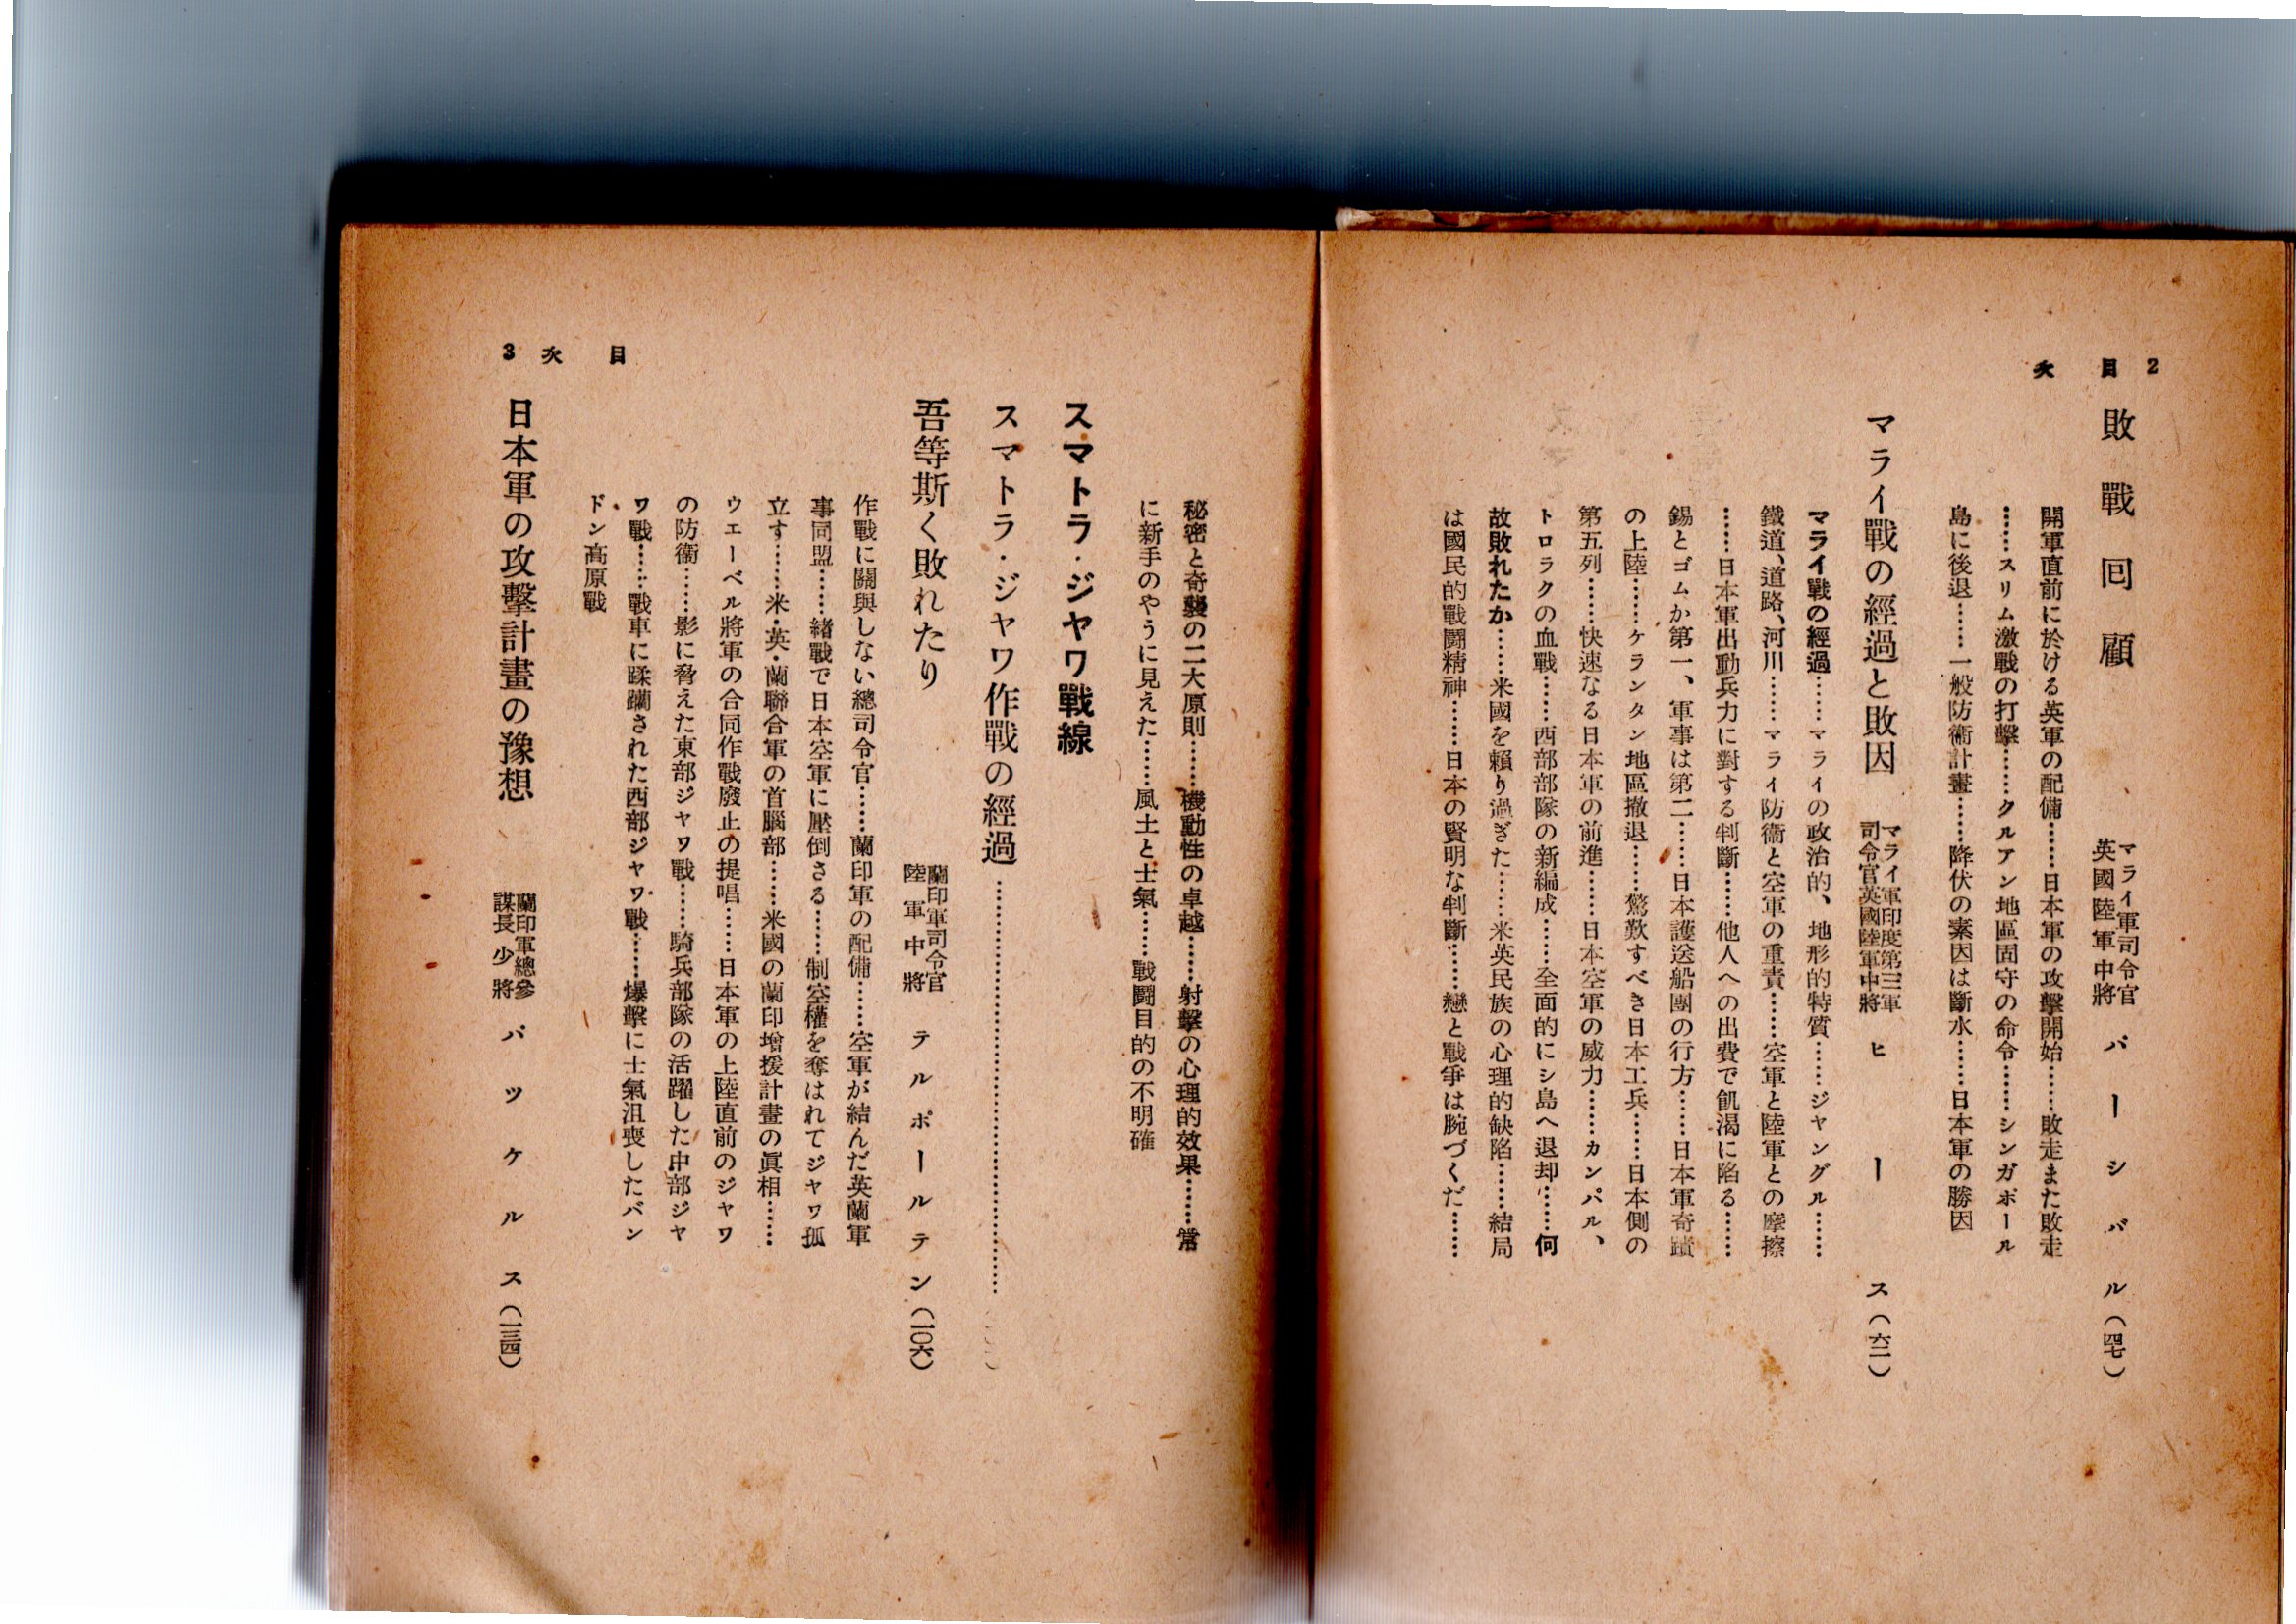 2 目次
敗戰回顧 マライ軍司令官英國陸軍中將 パーシバル（四七）
開軍直前に於ける英軍の配備……日本軍の攻擊開始……敗走また敗走
……スリム激戰の打擊……クルアン地區固守の命令……シンガポール
島に後退……一般防衞計畫……降伏の素因は斷水……日本軍の勝因
マライ戰の經過と敗因 マライ軍印度第三軍司令官英國陸軍中將 ヒース（六二）
マライ戰の經過……マライの政治的、地形的特質……ジャングル……
鐵道、道路、河川……マライ防衞と空軍の重責……空軍と陸軍との摩擦
……日本軍出動兵力に對する判斷……他人への出費で飢渇に陷る……
錫とゴムか第一、軍事は第二……日本護送船團の行方……日本軍奇蹟
の上陸……ケランタン地區撤退……驚歎すべき日本工兵……日本側の
第五列……快速なる日本軍の前進……日本空軍の威力……カンパル、
トロラクの血戰……西部部隊の新編成……全面的にシ島へ退却……何
故敗れたか……米國を賴り過ぎた……米英民族の心理的缺陷……結局
は國民的戰鬪精神……日本の賢明な判斷……戀と戰爭は腕づくだ……
秘密と奇襲の二大原則……機動性の卓越……射擊の心理的效果……常
に新手のやうに見えた……風土と士氣……戰鬪目的の不明確
スマトラ・ジャワ戰線
スマトラ・ジャワ作戰の經過……
吾等斯く敗れたり 蘭印軍司令官陸軍中將 テルポールテン（一〇六）
作戰に關與しない總司令官……蘭印軍の配備……空軍が結んだ英蘭軍
事同盟……緖戰で日本空軍に壓倒さる……制空權を奪はれてジャワ孤
立す……米・英・蘭聯合軍の首腦部……米國の蘭印增援計畫の眞相……
ウエーベル將軍の合同作戰廢止の提唱……日本軍の上陸直前のジャワ
の防衞……影に脅えた東部ジャワ戰……騎兵部隊の活躍した中部ジャ
ワ戰……戰車に蹂躙された西部ジャワ戰……爆擊に士氣沮喪したバン
ドン高原戰
日本軍の攻擊計畫の豫想 蘭印軍總參謀長少將 バツケルス（一三四）
目次 3